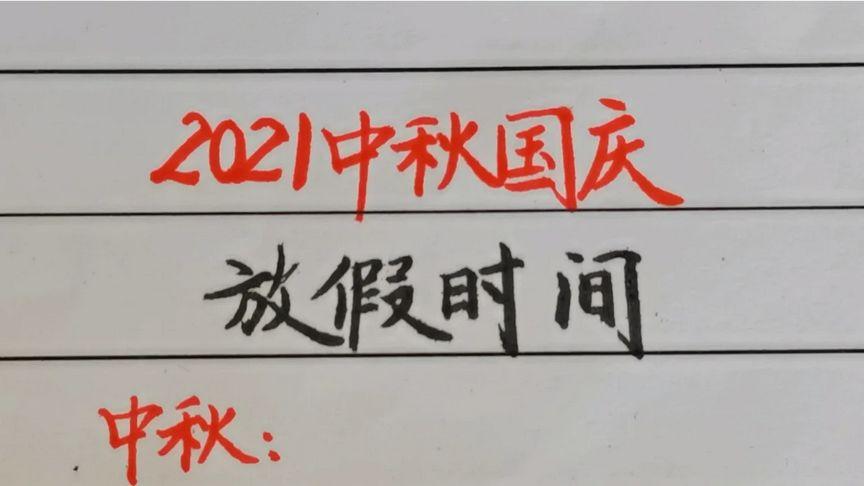 2021中秋国庆
放假时间
中秋: